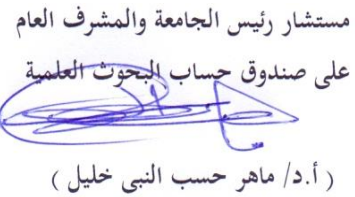 مستشار رئيس الجامعة والمشرف العام
على صندوق حساب البحوث العلمية
( أ.د/ ماهر حسب النبى خليل )